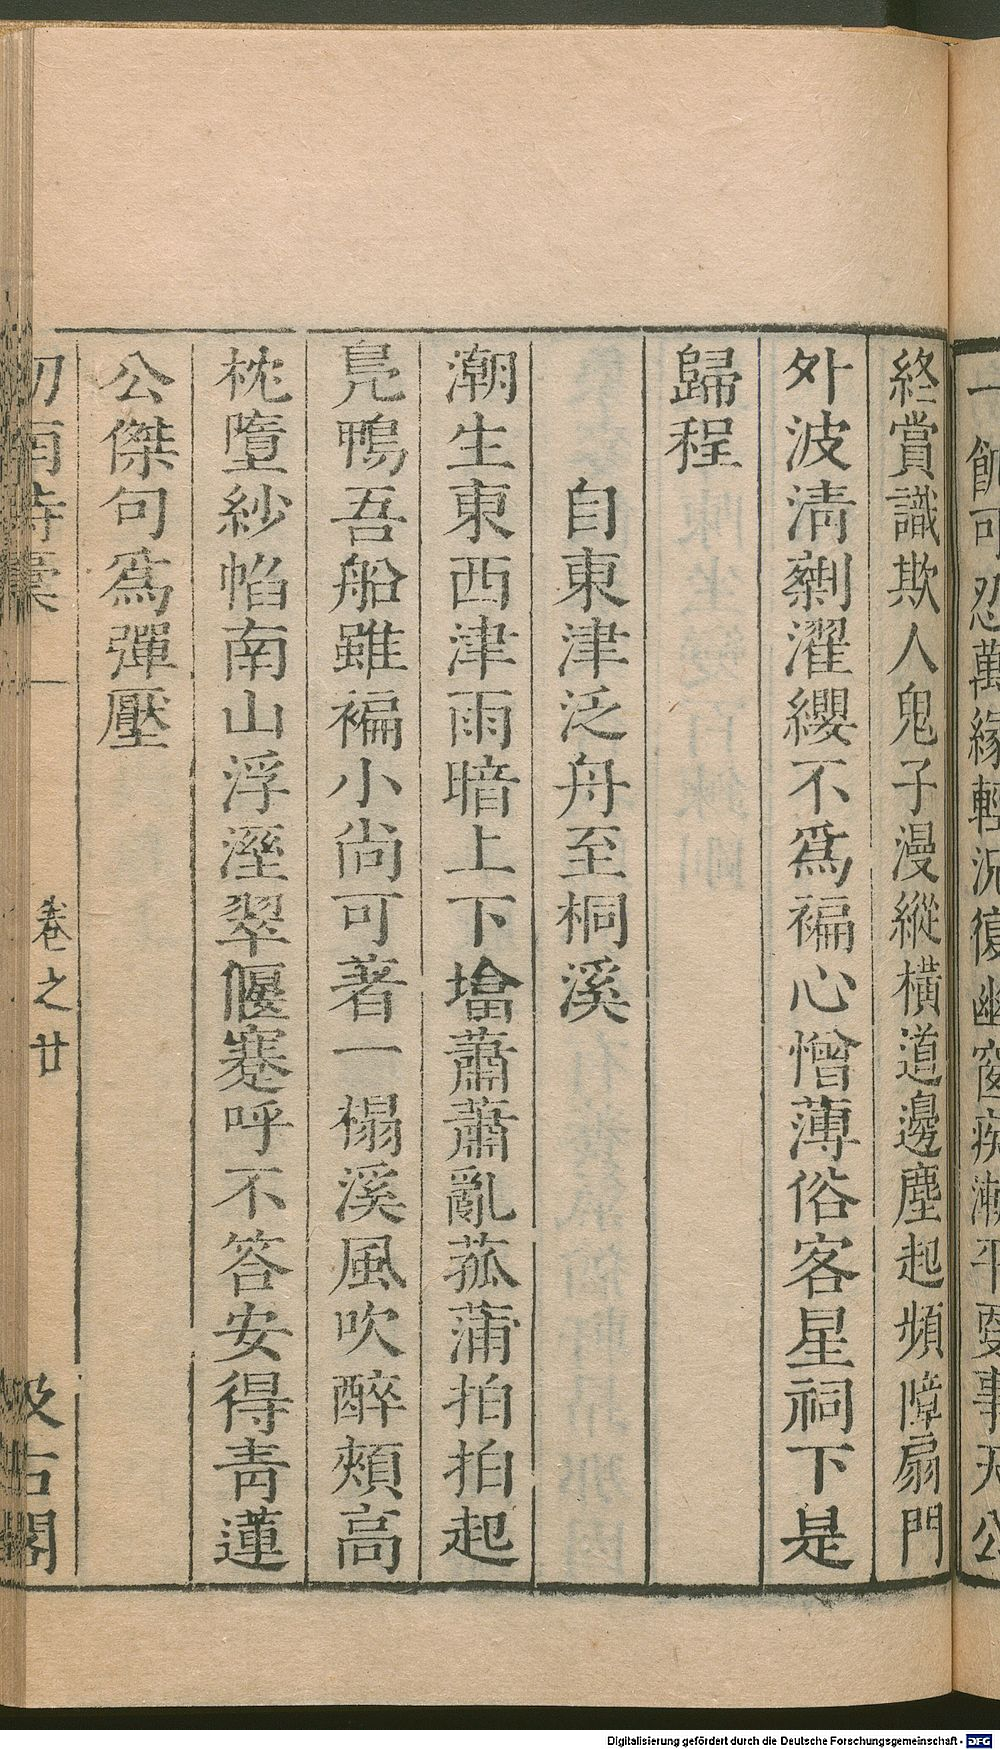 一飽可忍萬緣輕況復幽窗疾漸平更事天公
終賞識欺人鬼子漫縱橫道邊塵起頻障扇門
外波清剩濯纓不爲褊心憎薄俗客星祠下是
歸程
自東津泛舟至桐溪
潮生東西津雨暗上下墖蕭蕭亂菰蒲拍拍起
鳧鴨吾船雖褊小尚可著一榻溪風吹醉頰高
枕墮紗帢南山浮溼翠偃蹇呼不答安得靑蓮
公傑句爲彈壓
劒南詩稾 卷之廿 汲古閣
Digitalisierung gefördert durch die Deutsche Forschungsgemeinschaft - DFG